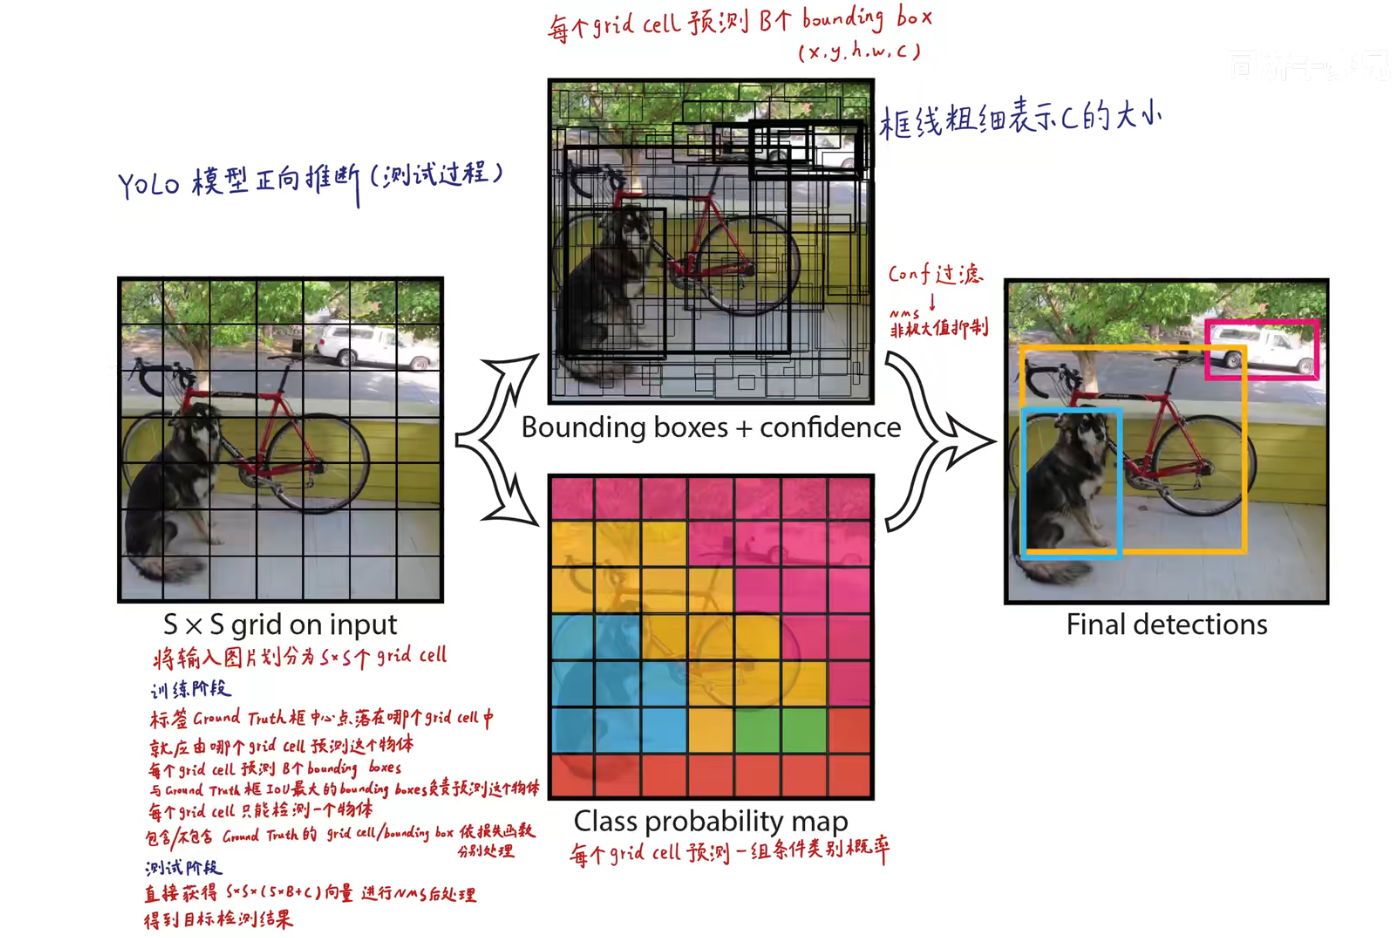 每个grid cell 预测 B个 bounding box
(x.y.h.w.c)
框线粗细表示C的大小
YOLO 模型正向推断(测试过程)
Conf过滤
↓
NMS
非极大值抑制
Bounding boxes + confidence
S × S grid on input
Final detections
将输入图片划分为S×S个 grid cell
训练阶段
标签 Ground Truth 框中心点落在哪个grid cell 中
就应由哪个grid cell 预测这个物体
每个grid cell 预测 B个bounding boxes
与Ground Truth 框 IoU最大的bounding boxes负责预测这个物体
每个grid cell 只能检测一个物体
包含/不包含 Ground Truth的 grid cell/bounding box 依损失函数
分别处理
测试阶段
直接获得 S×S×(5×B+C)向量 进行NMS后处理
得到目标检测结果
Class probability map
每个grid cell 预测一组条件类别概率